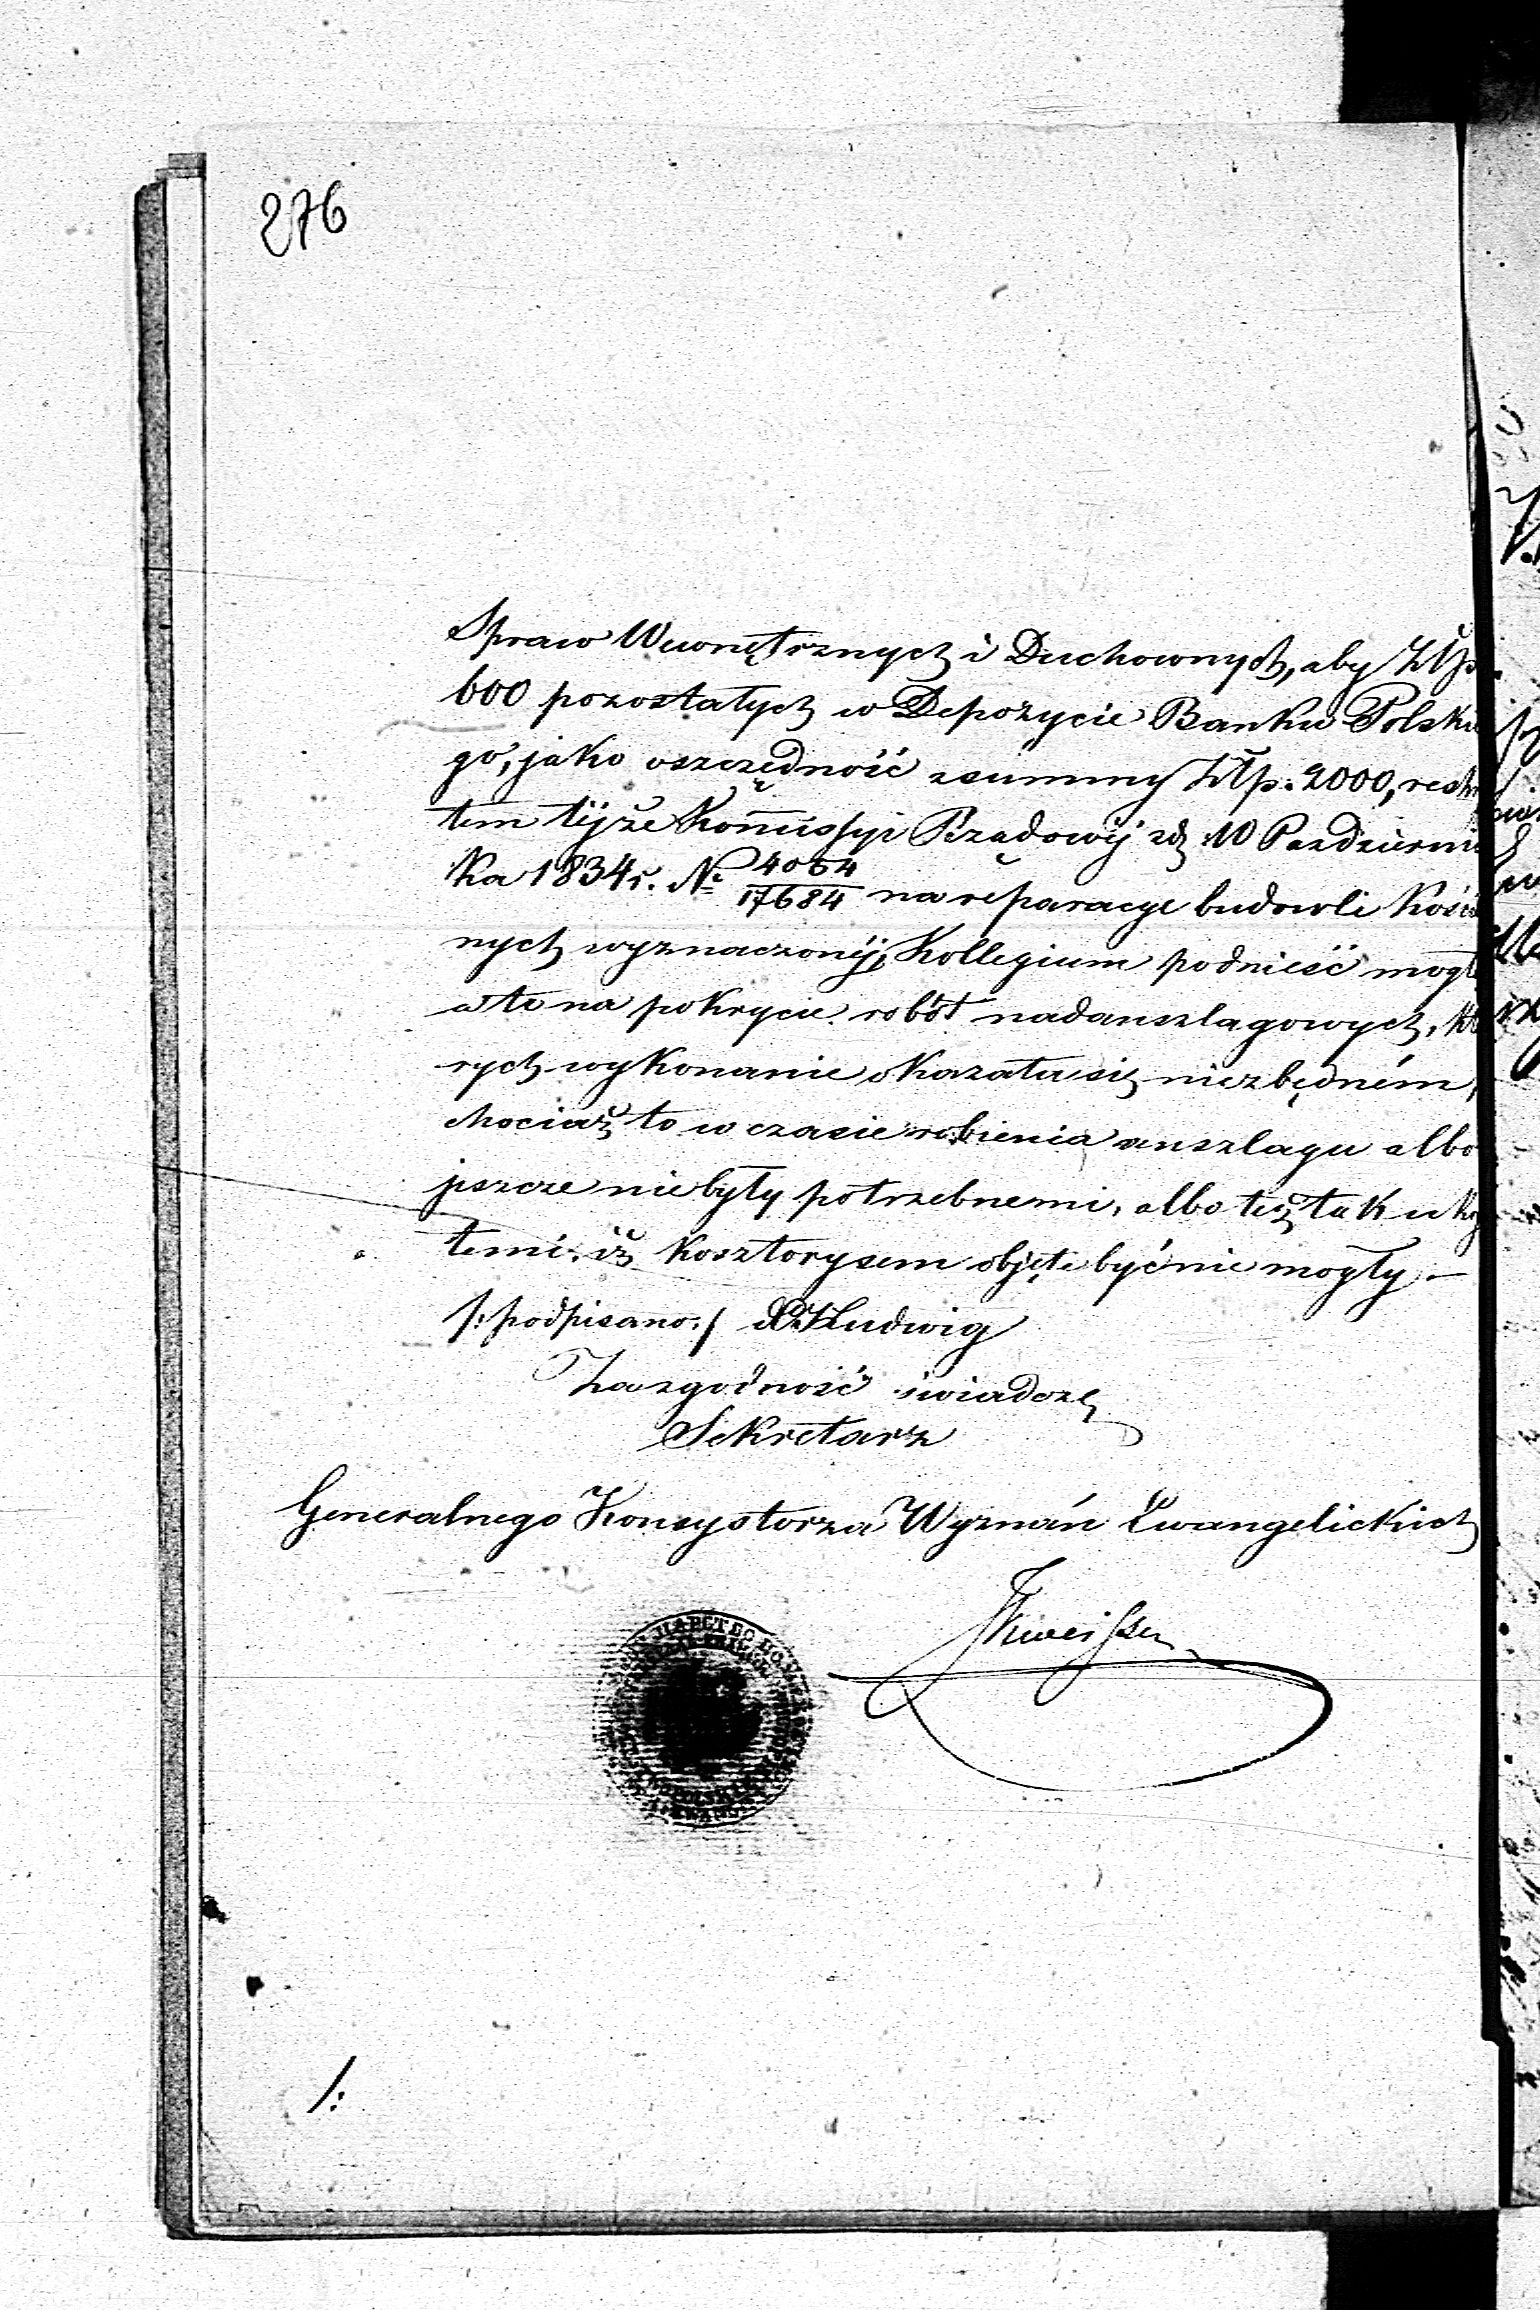 276
Spraw Wewnętrznych i Duchownych, aby Złp.
600 pozostałych w Depozycie Banku Polskie
go, jako oszczędność z summy Złp. 2000, reskryp
tem tejże Kommissyi Rządowéj zd. 10 Październi
ka 1834 r. Nr 4064/17684 na reparacye budowli Kościel
nych wyznaczonéj, Kollegium podnieść mogło
a to na pokrycie robót nadanszlagowych, któ
rych wykonanie okazało się niezbędném,
chociaż to w czasie robienia anszlagu albo
jeszcze nie były potrzebnemi, albo też tak ukry
temi, iż kosztorysem objęte być nie mogły. –
/: podpisano :/ Ludwig
Za zgodność świadczę
Sekretarz
Generalnego Konsystorza Wyznań Ewangelickich
/: